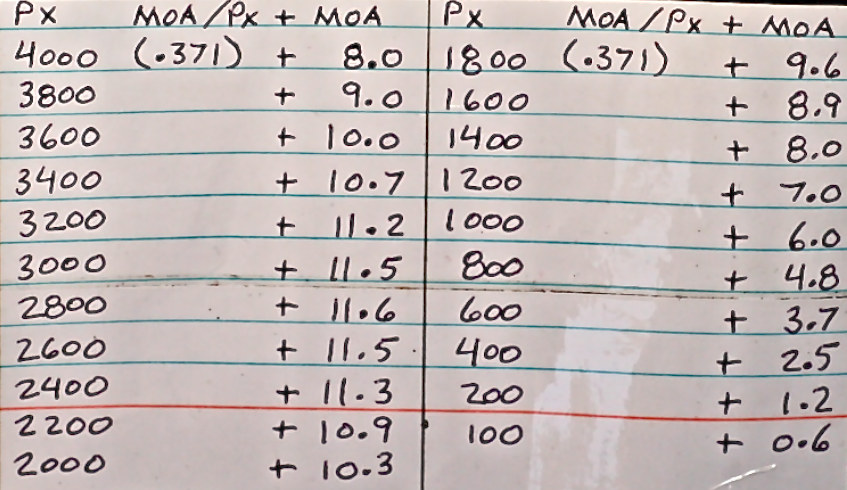 Px MOA/Px + MOA
4000 (.371) + 8.0
3800 + 9.0
3600 + 10.0
3400 + 10.7
3200 + 11.2
3000 + 11.5
2800 + 11.6
2600 + 11.5
2400 + 11.3
2200 + 10.9
2000 + 10.3
Px MOA/Px + MOA
1800 (.371) + 9.6
1600 + 8.9
1400 + 8.0
1200 + 7.0
1000 + 6.0
800 + 4.8
600 + 3.7
400 + 2.5
200 + 1.2
100 + 0.6